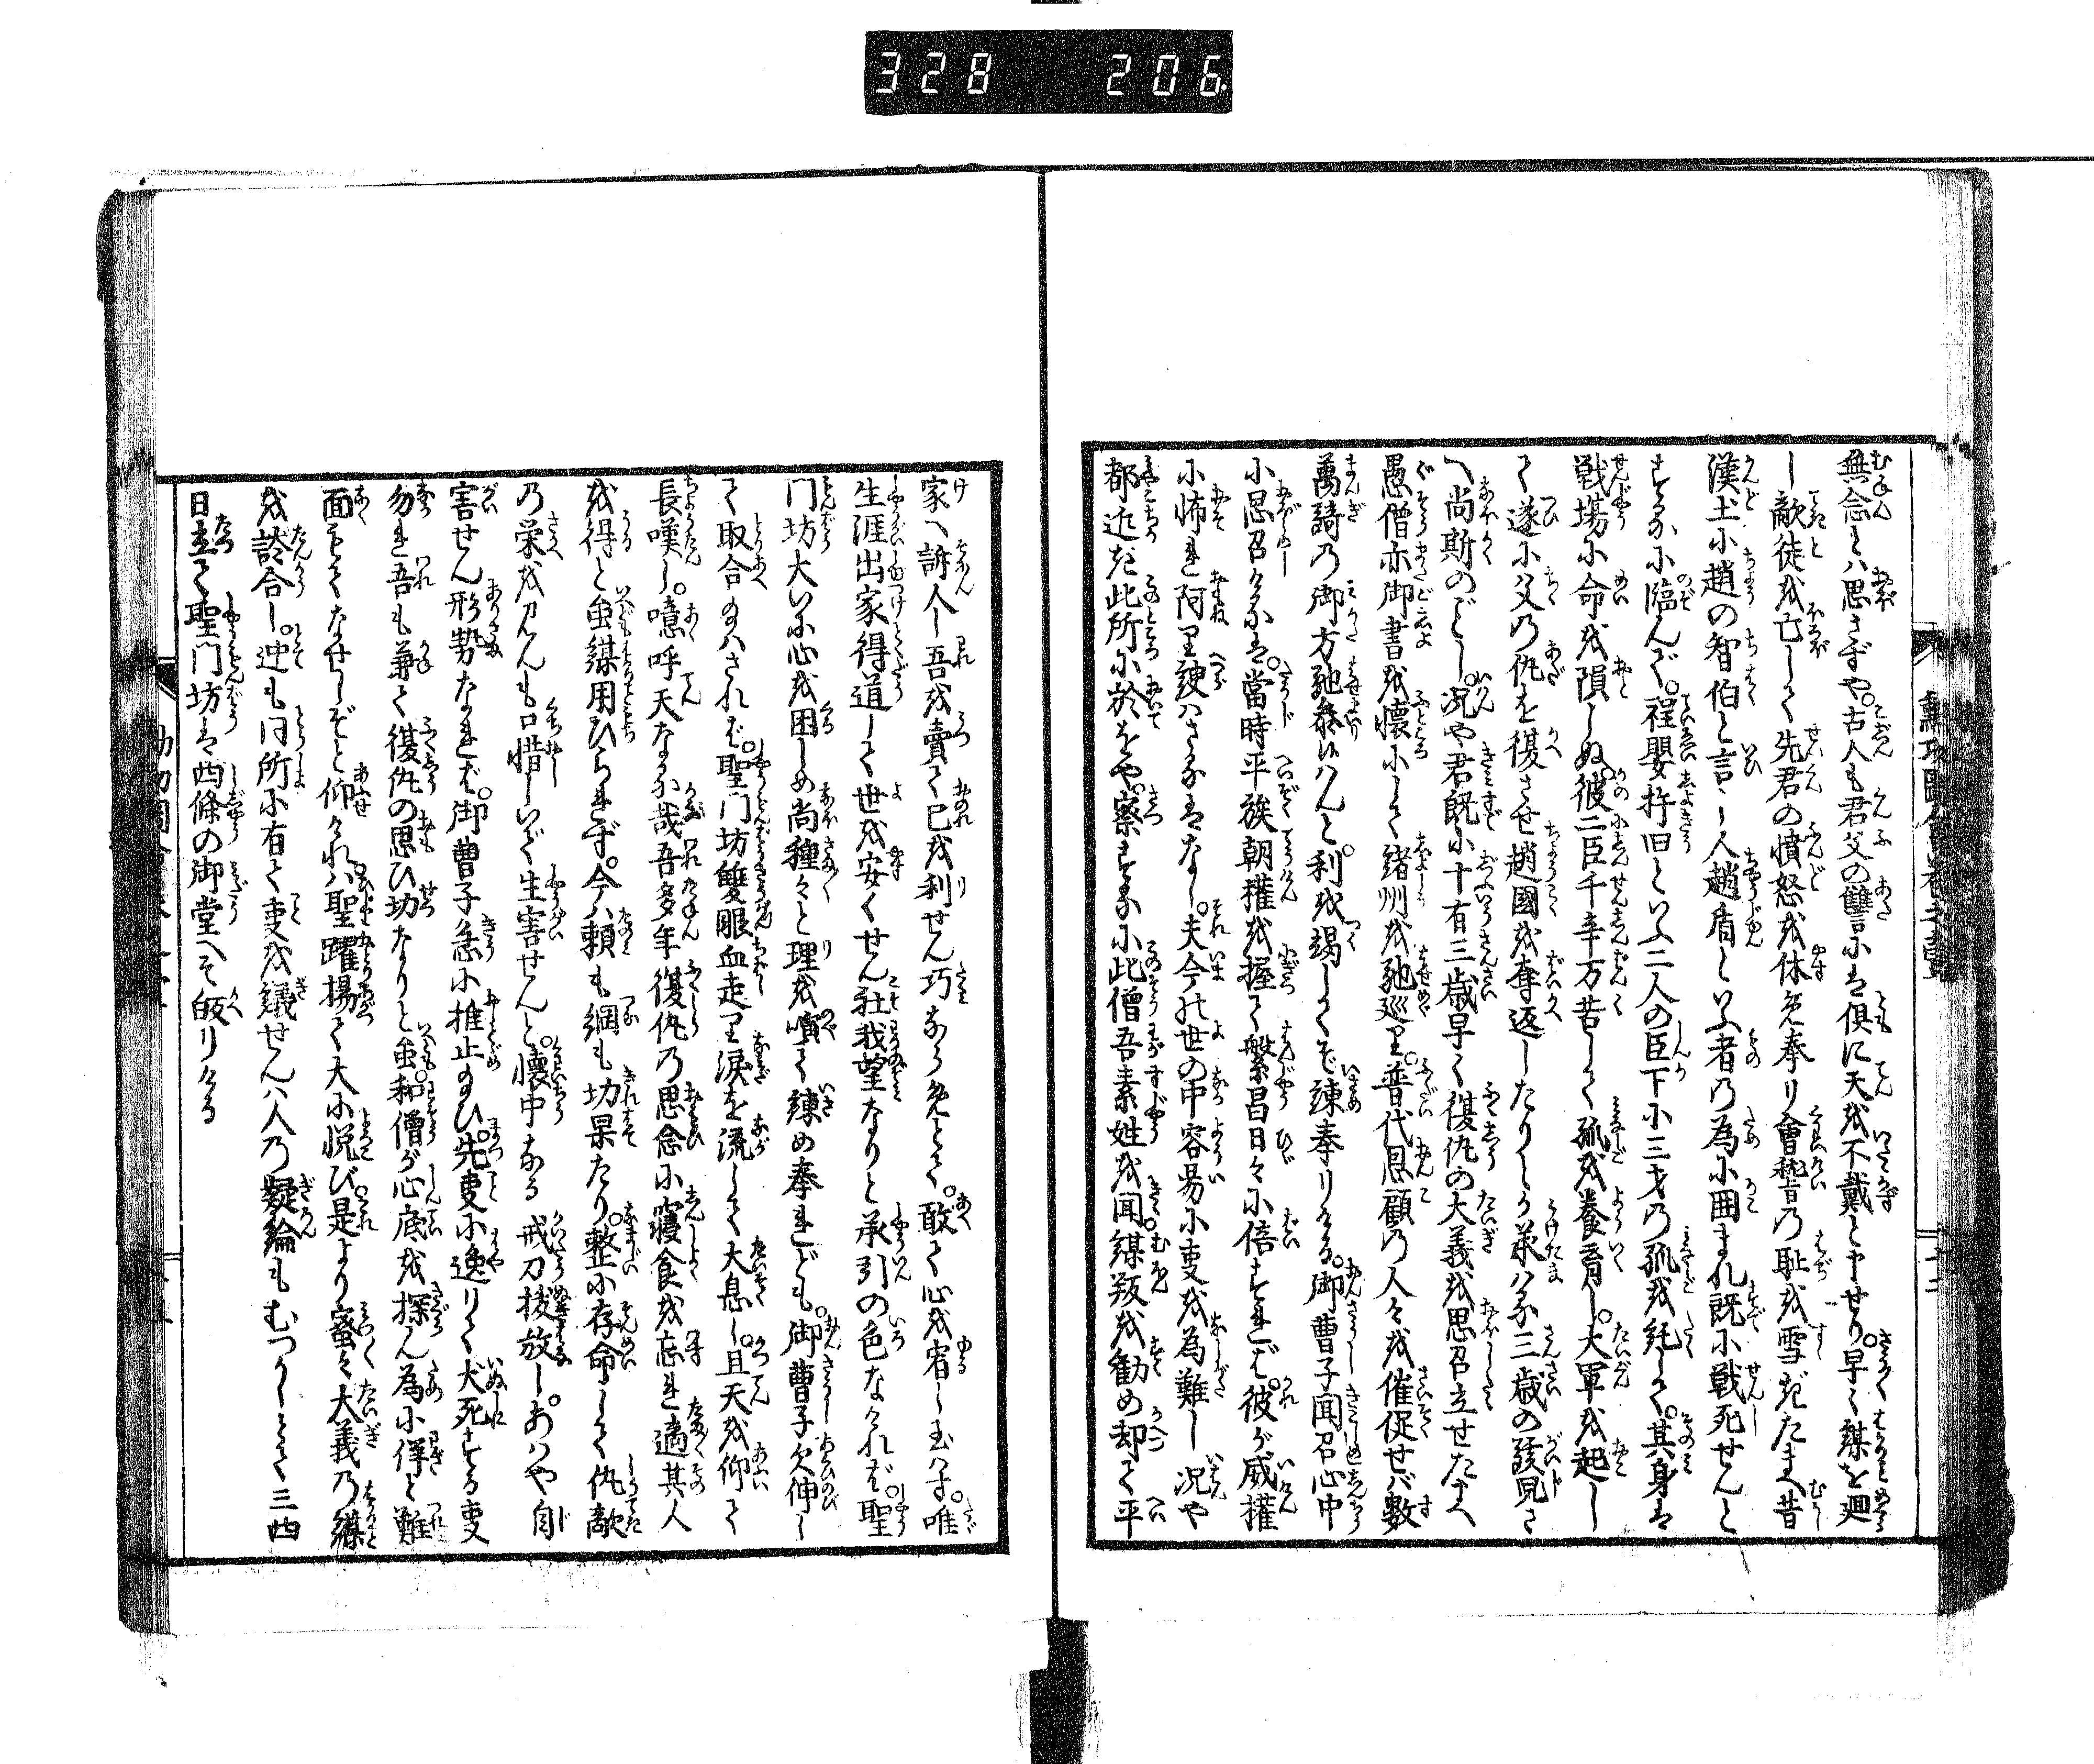 328 206
無念とハ思さずや。古人も君父の讐にハ倶に天を不戴と申せり。早く謀を廻
し敵徒を亡して先君の憤怒を休め奉り會稽の恥を雪ぎたまへ昔
漢土に趙の智伯と言し人趙盾といふ者の為に囲まれ既に戦死せんと
するに臨んで。程嬰杵臼といふ二人の臣下に三才の孤を託して。其身ハ
戦場に命を隕しぬ。彼二臣千辛万苦して孤を養育し。大軍を起し
て遂に父の仇を復させ趙國を奪返したりしと承ハる三歳の孩児さ
へ尚斯のごとし。况や君既に十有三歳早く復仇の大義を思召立せたまへ
愚僧亦御書を懐にして緒州を馳巡り。普代恩顧の人々を催促せバ數
萬騎の御方馳参ハんと。利を竭して諫奉りける。御曹子聞召心中
に思召けるハ。當時平族朝權を握て繁昌日々に倍すれば。彼が威權
に怖れ阿り諛ハざるハなし。夫今の世の中容易に叓を為難し况や
都近き此所に於をや。察するに此僧吾素姓を聞謀叛を勧め却て平
家へ訴人し吾を賣て己を利せん巧ならめとて。敢て心を宥し玉ハず。唯
生涯出家得道して世を安くせん社我望なりと承引の色なければ。聖
門坊大いに心を困しめ尚種々と理を噴て諫め奉れども。御曹子欠伸し
て取合のハされば。聖門坊雙眼血走り涙を流して大息し。且天を仰て
長嘆し。噫呼天なる哉吾多年復仇の思念に寝食を忘れ適其人
を得ると虽謀用ひられず。今ハ頼も綱も切果たり。整に存命して仇敵
の栄を見んも口惜しいで生害せんと。懐中なる戒刀抜放し。あハや自
害せん形勢なれば。御曹子急に推止のひ。先叓に逸りて犬死する叓
勿れ吾も兼て復仇の思ひ切なりと虽。和僧が心底を探ん為に佯と難
面もてなせしぞと仰けれハ。聖躍揚て大に悦び。是より蜜々大義の謀
を談合し。迚も同所に有て叓を議せんハ人の疑論もむつかしとて三四
日立て聖門坊ハ四條の御堂へぞ皈りける